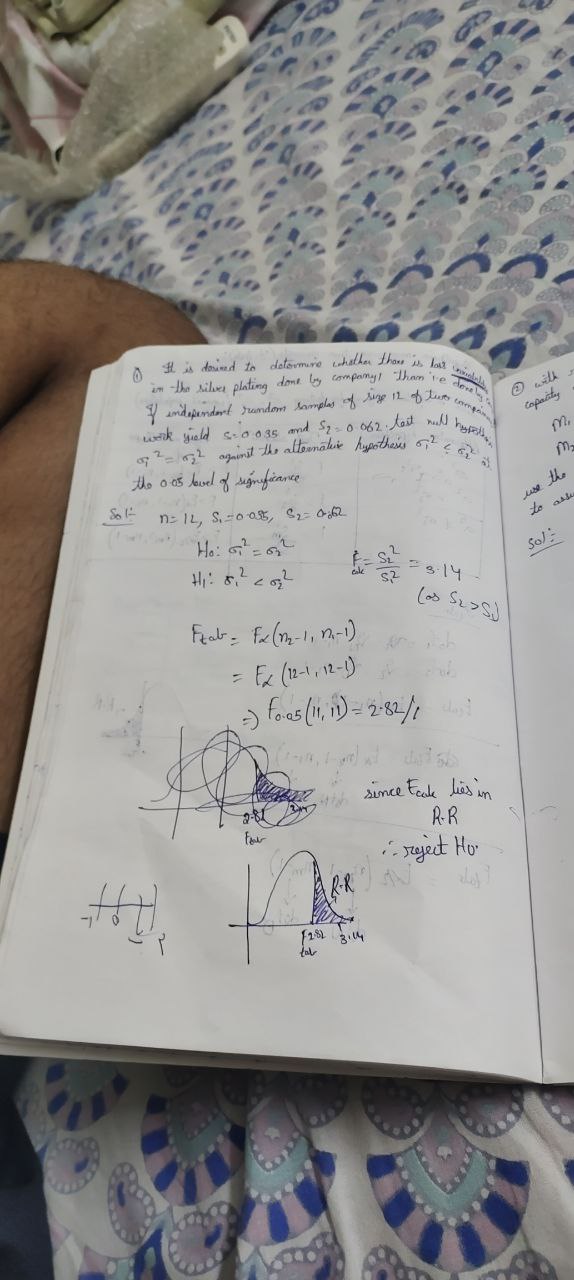 ① It is desired to determine whether there is less variability
in the silver plating done by company1 than is done by
If independent random samples of size 12 of two companies
work yield S₁=0.035 and S₂=0.062. test null hypothesis
σ₁²=σ₂² against the alternative hypothesis σ₁²<σ₂² at
the 0.05 level of significance
Sol:- n=12, S₁=0.035, S₂=0.062
H₀: σ₁²=σ₂²
H₁: σ₁²<σ₂²
F cal = S₂²/S₁² = 3.14
(as S₂>S₁)
Ftab = F∝(n₂-1, n₁-1)
= F∝(12-1, 12-1)
=) F0.05(11,11)=2.82//
since Fcal lies in
R.R
∴ reject H₀.
2.82 3.14
Ftab
R.R
F 2.82 3.14
tab
-1 0
② with
capacity
M₁
M₂
use the
to
Sol:-